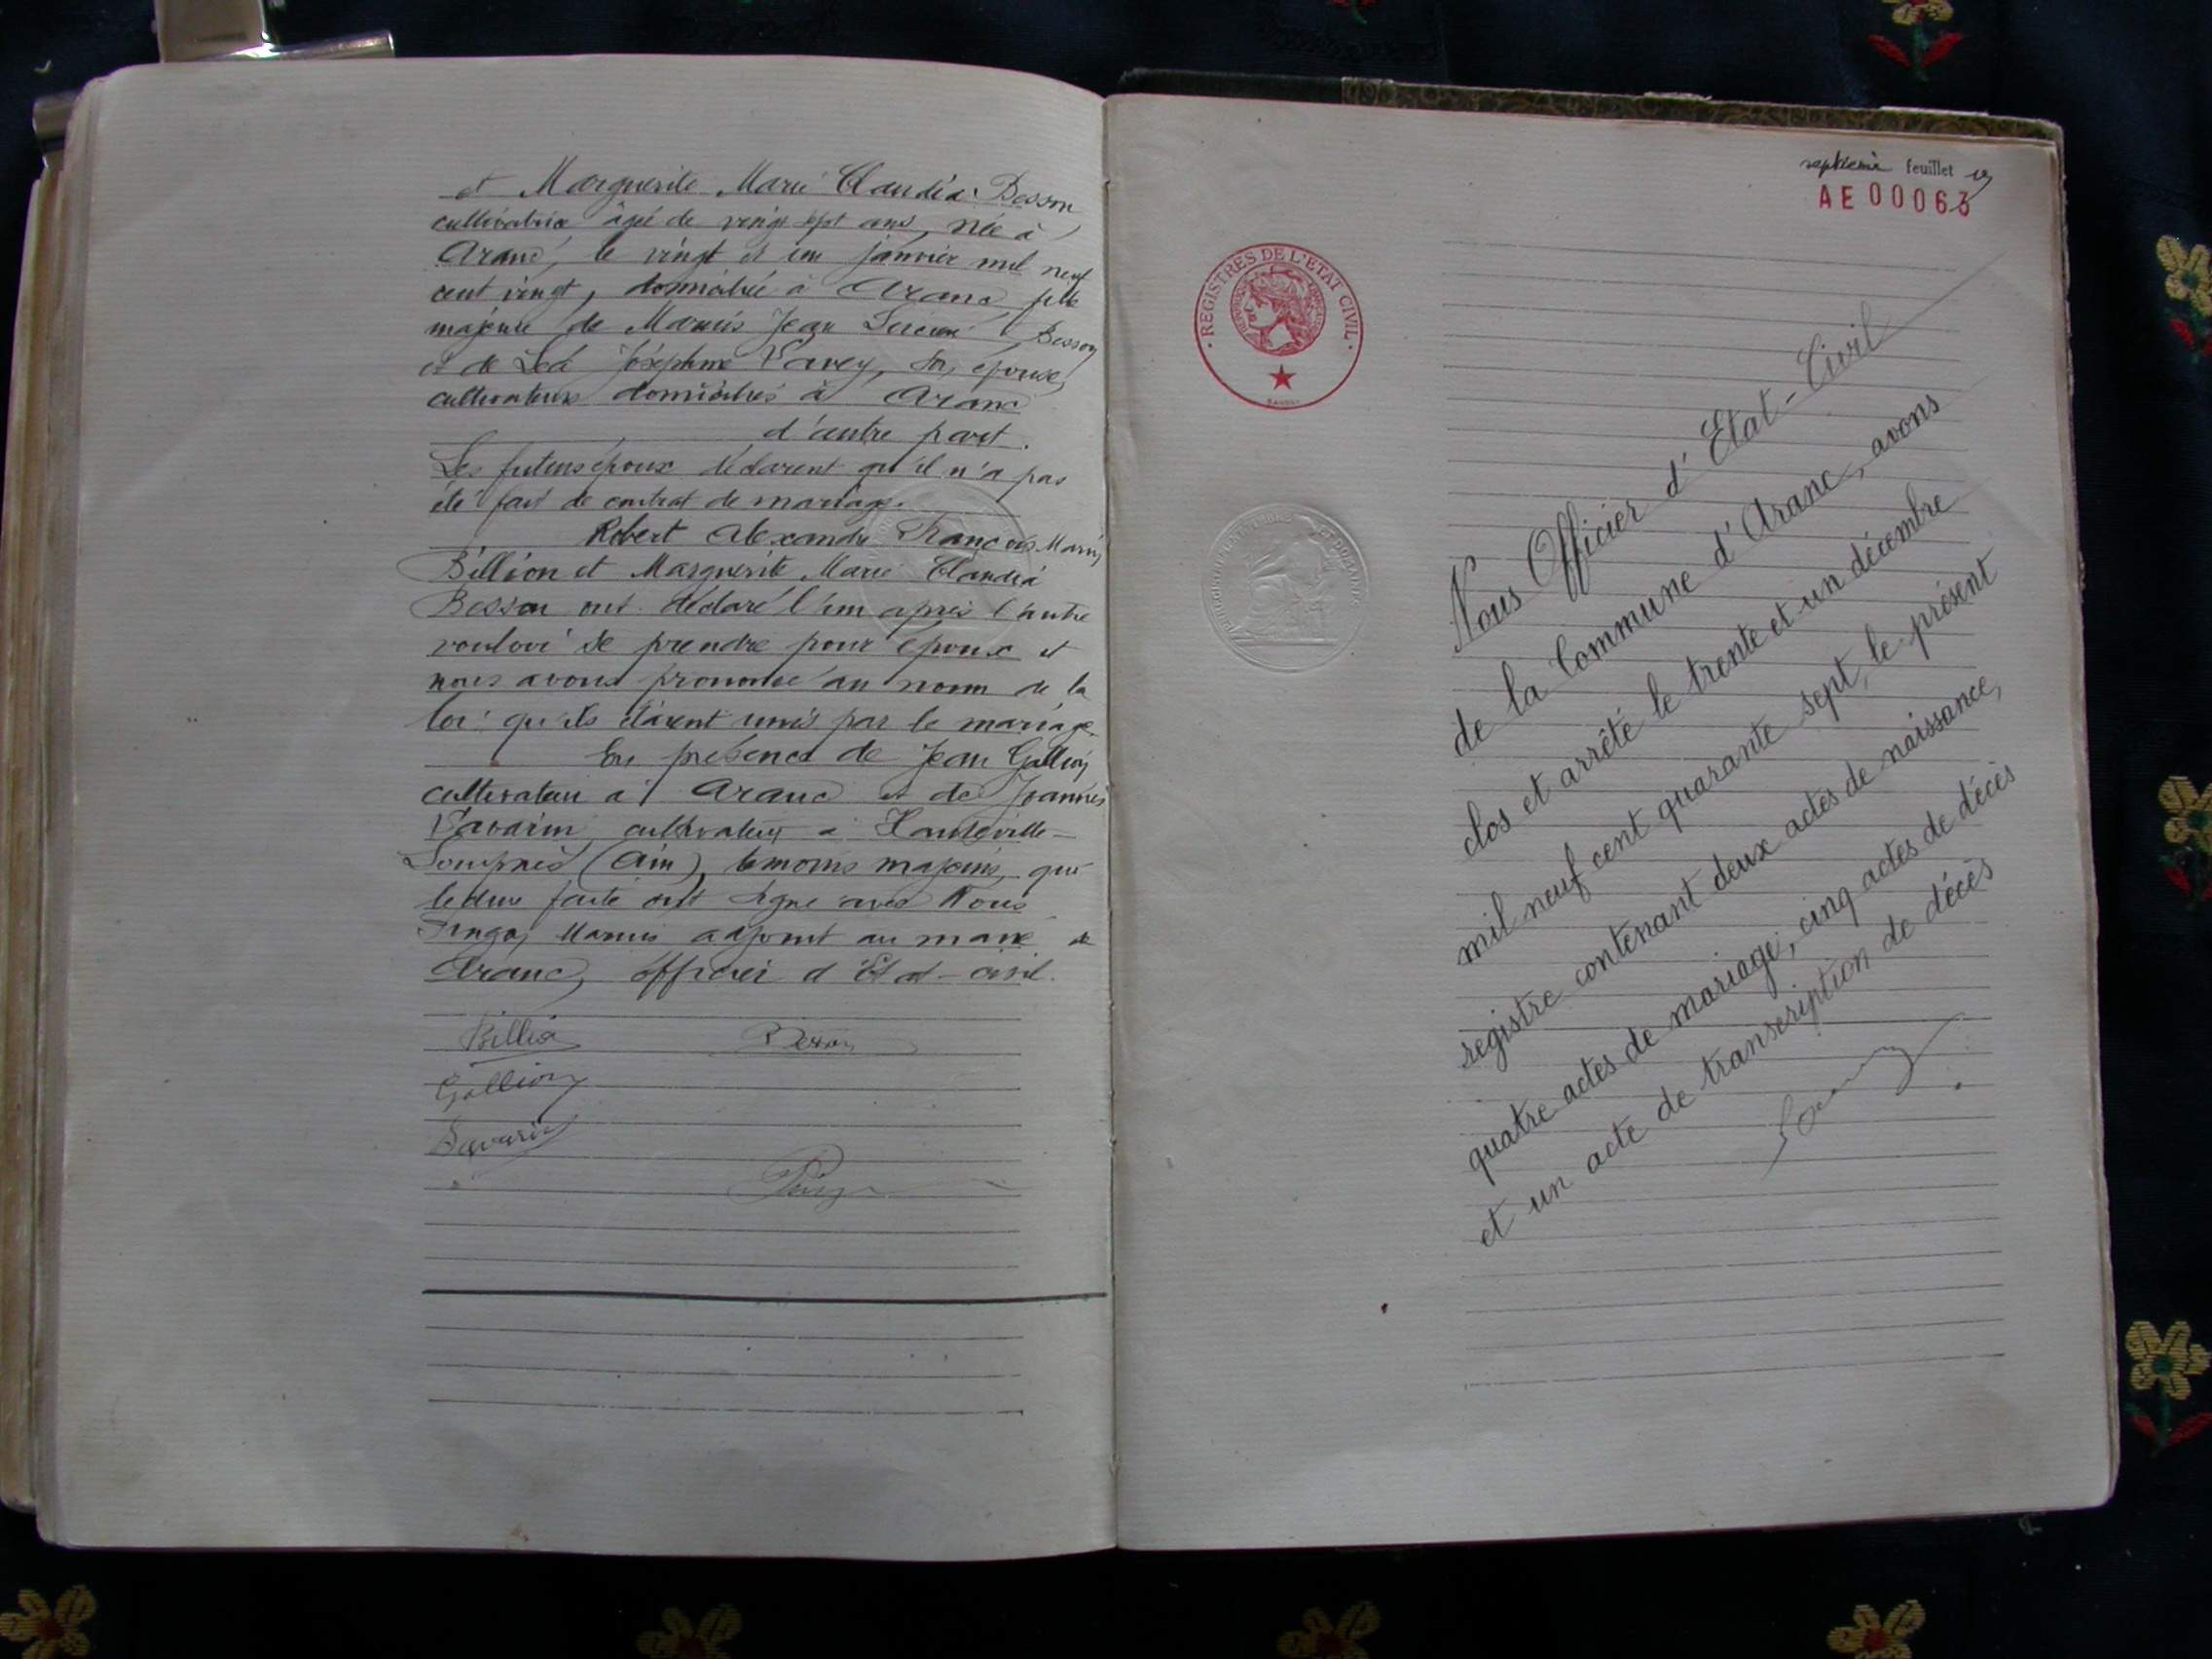 et Marguerite Marie Claudia Besson
cultivatrice âgée de vingt sept ans, née à
Aranc, le vingt et un janvier mil neuf
cent vingt, domiciliée à Aranc fille
majeure de Marius Jean Besson
et de Léa Joséphine Savey, son épouse,
cultivateurs domiciliés à Aranc
d'autre part.
Les futurs époux déclarent qu'il n'a pas
été fait de contrat de mariage.
Robert Alexandre François Marius
Billion et Marguerite Marie Claudia
Besson ont déclaré l'un après l'autre
vouloir se prendre pour époux et
nous avons prononcé au nom de la
loi qu'ils étaient unis par le mariage.
En présence de Jean Gallion
cultivateur à Aranc et de Joannès
Savarin, cultivateur à Hauteville-
Lompnès (Ain), témoins majeurs, qui
lecture faite ont signé avec Nous
Marius adjoint au maire de
Aranc, officier d'Etat-civil.
Billion Besson
Gallion
Savarin
feuillet
AE 00063
· REGISTRES DE L'ETAT CIVIL ·
Nous Officier d'Etat-Civil
de la Commune d'Aranc, avons
clos et arrêté le trente et un décembre
mil neuf cent quarante sept, le présent
registre contenant deux actes de naissance,
quatre actes de mariage, cinq actes de décès
et un acte de transcription de décès